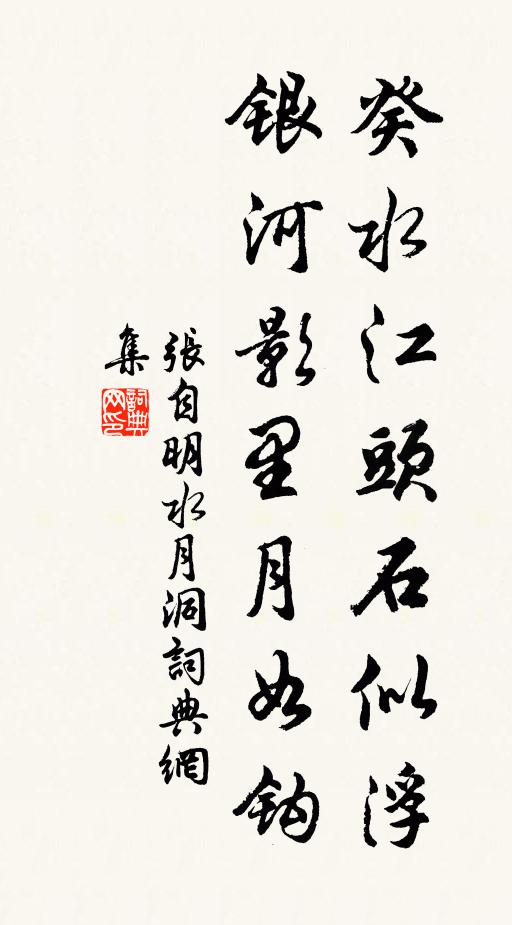 癸水江頭石似浮
銀河影里月如鈎
張自明水月洞詞典網
集
詞典網印